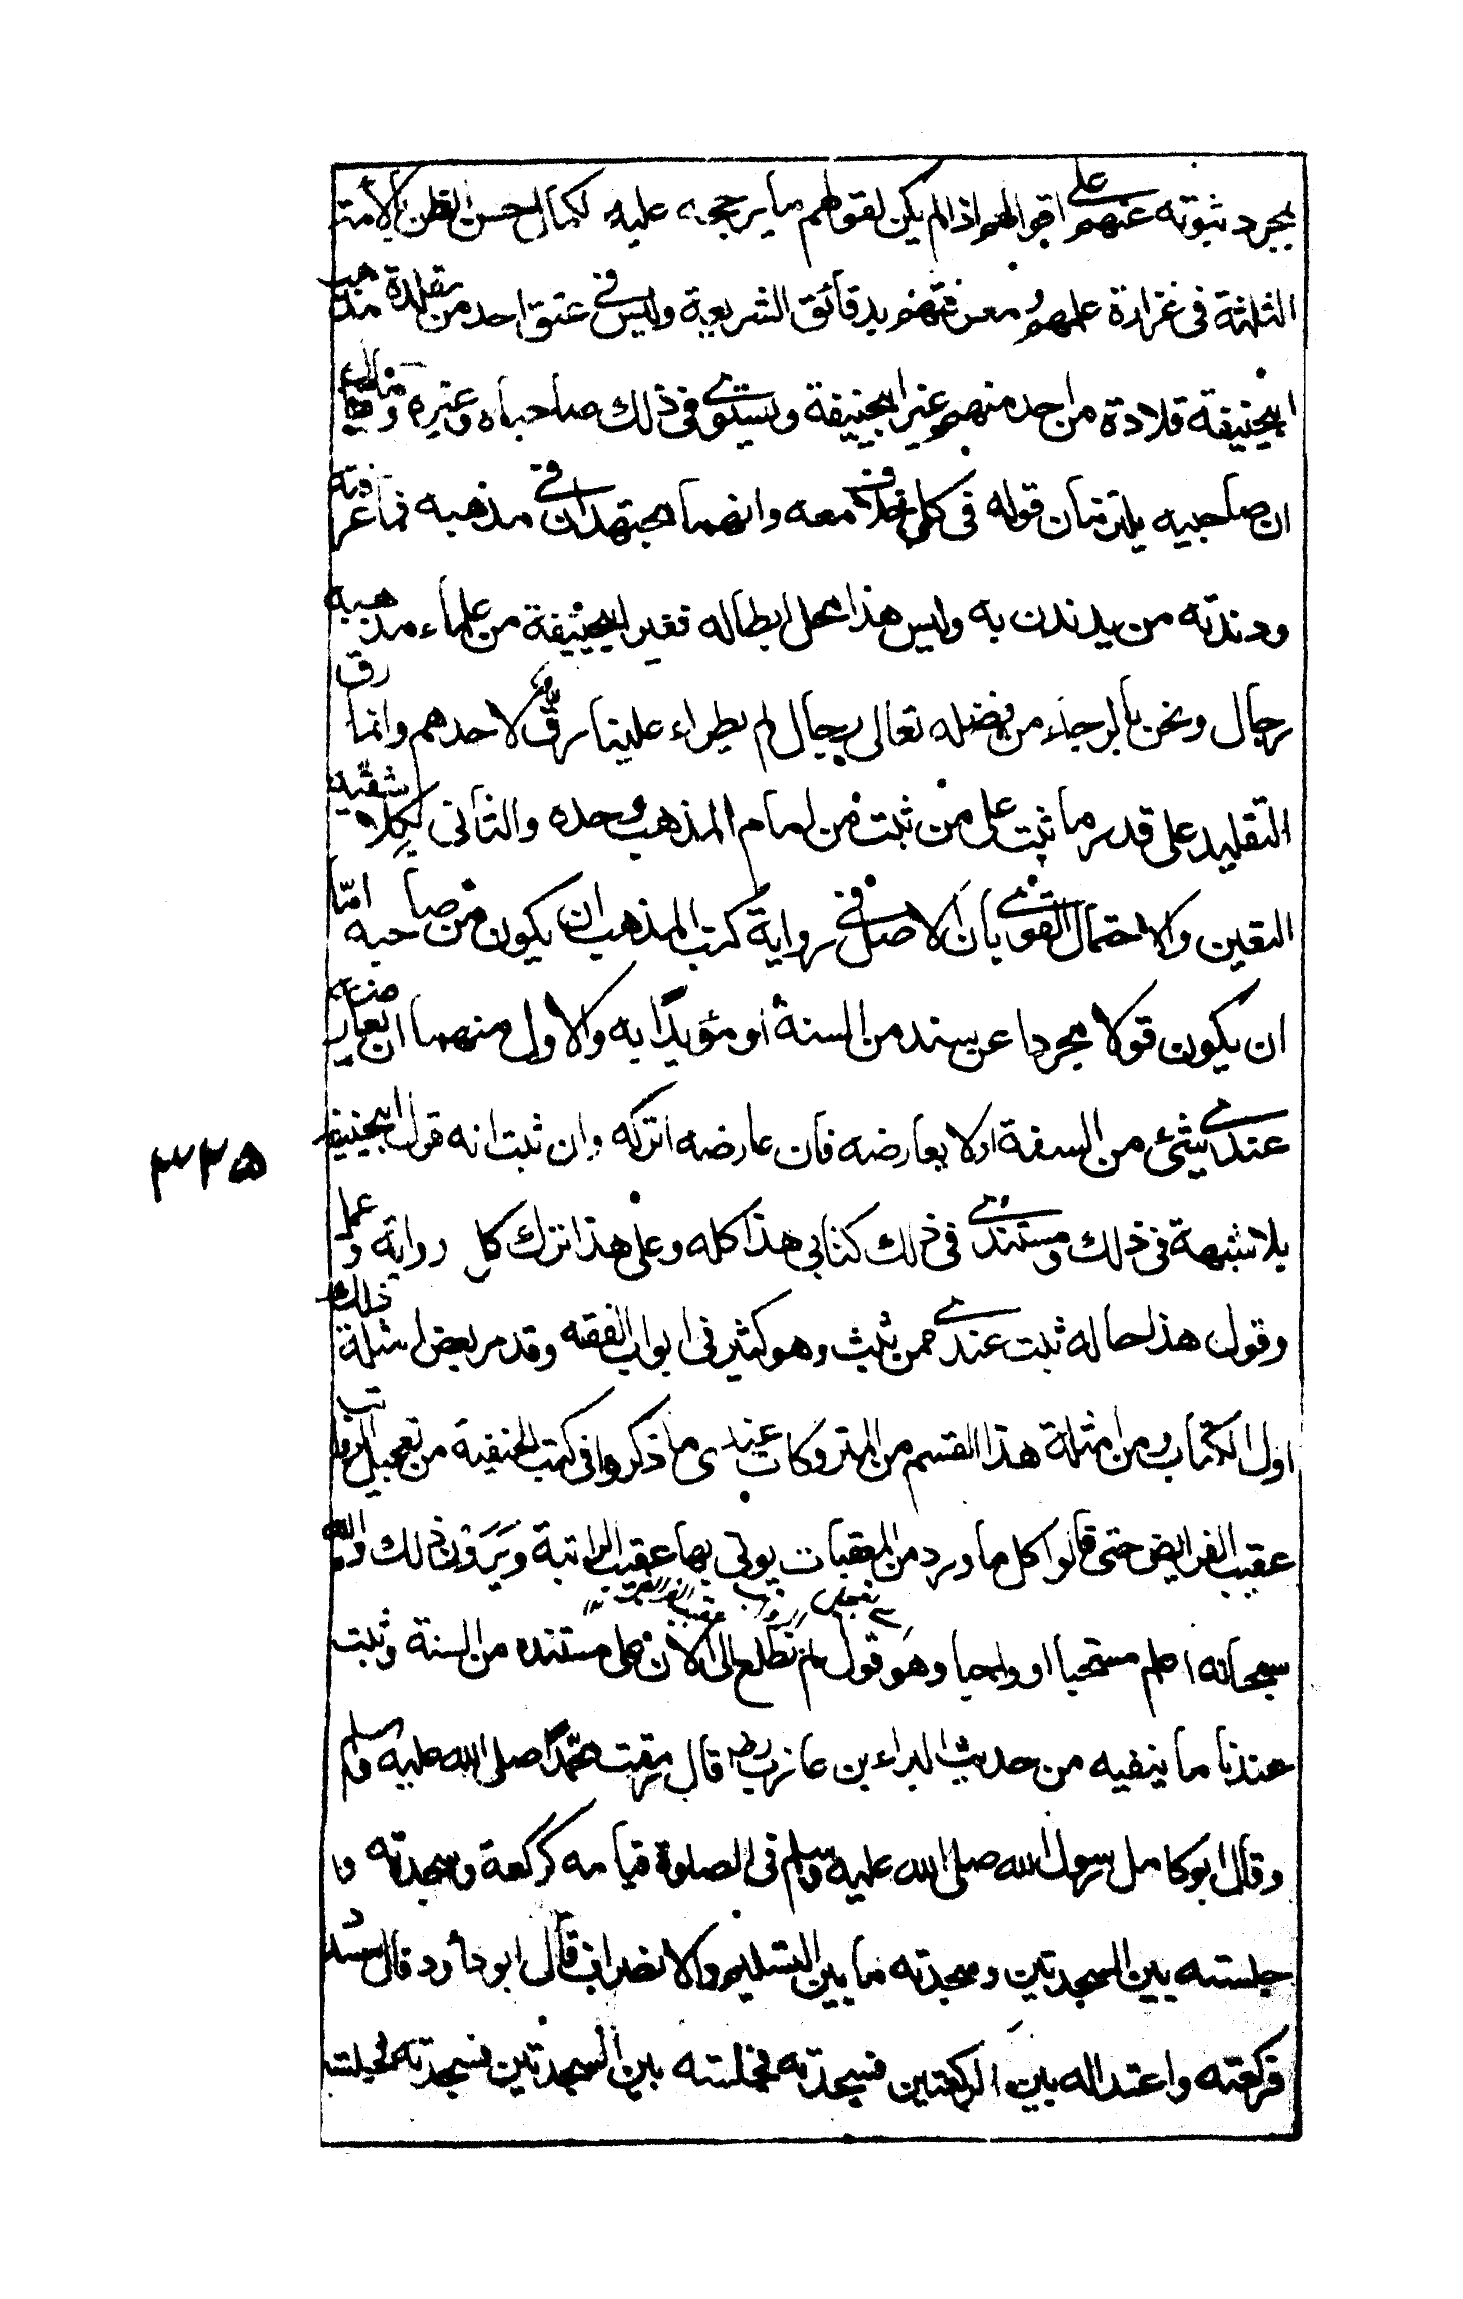 بمجرد ثبوته عنهم على اقوالهم اذا لم يكن لقولهم ما يرجحه عليه لكمال حسن الظن بالأئمة
الثلثة فى غزارة علمهم و معرفتهم بدقائق الشريعة وليس فى عنق احد من مقلدة مذهب
ابيحنيفة قلادة من احد منهم غير ابيحنيفة ويستوى فى ذلك صاحباه وغيره وما يقال
ان صاحبيه يلتزمان قوله فى كل خلاف معه وانهما مجتهدان فى مذهبه فما عرفته
ودندنه من يدندن به وليس هذا محل ابطاله فغير ابيحنيفة من علماء مذهبه
رجال ونحن بالرجاء من فضله تعالى رجال لم يطراء علينا رق لاحدهم وانما رق
التقليد على قدر ما ثبت على من ثبت من امام المذهب وحده والثانى بكلا شقيه
اليقين والاحتمال القوى بان الاصل فى رواية كتب المذهب ان يكون من صاحبه امّا
ان يكون قولا مجردا عن سند من السنة او مؤيدًا به والاول منهما ان عارضه
عندى شئ من السنة او لا يعارضه فان عارضه اتركه وان ثبت انه قول ابيحنيفة
بلا شبهة فى ذلك ومستندى فى ذلك كتابى هذا كله وعلى هذا ترك كل رواية وعمل
وقول هذا حاله ثبت عندى ممن ثبت وهو كثير فى ابواب الفقه وقد مر بعض امثلة ذلك
اول الكتاب ومن امثلة هذا القسم من المتروكات عندى ما ذكروا فى كتب الحنفية من تعجيل الرواتب
عقيب الفرايض حتى قالوا كل ما ورد من المعقبات يوتى بها عقيب الراتبة ويَرَوْن ذلك والله
سبحانه اعلم مستحبا او واجبا وهو قول لم نطلع الى الان على مستنده من السنة وثبت
اى تعجيل الرواتب عقيب الفرائض
عندنا ما ينفيه من حديث البراء بن عازب رض قال رمقت محمدًا صلى الله عليه وسلم
وقال ابو كامل رسول الله صلى الله عليه وسلم فى الصلوة قيامه كركعة وسجدته وا
جلسته بين السجدتين وسجدته ما بين التسليم والانصراف قال ابو داؤد قال مسدد
فركعته واعتداله بين الركعتين فسجدته فجلسته بين السجدتين فسجدته فجلسته
٣٢٥